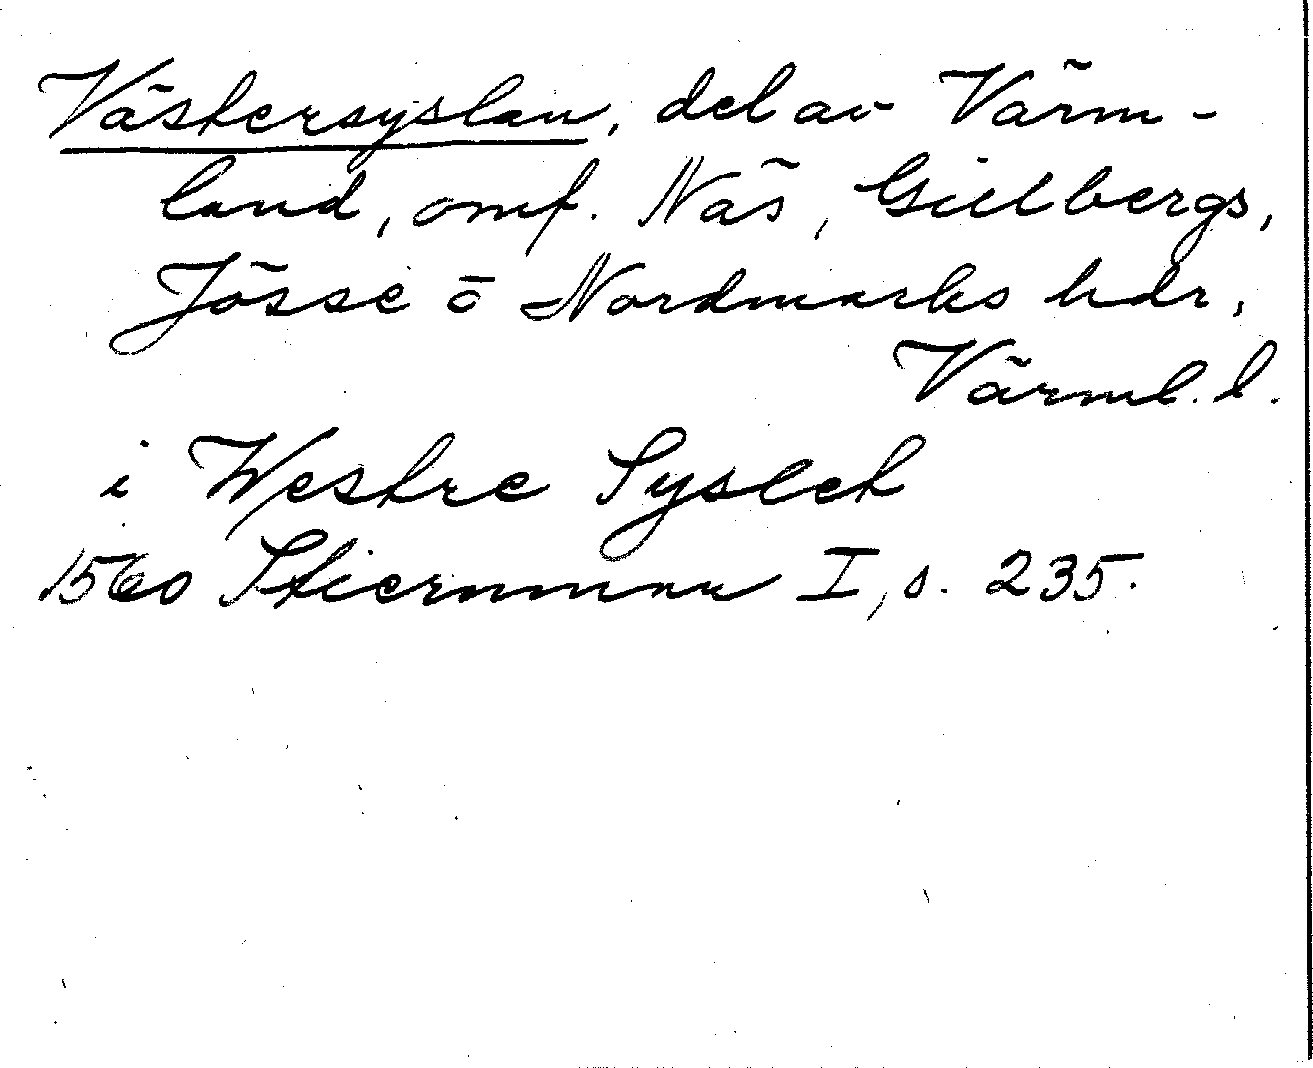 Västersyslan, del av Värm-
land, omf. Näs, Gillbergs,
Jösse o Nordmarks hdr,
Värml. l.
i Westre Syslet
1560 Stiernman I, s. 235.